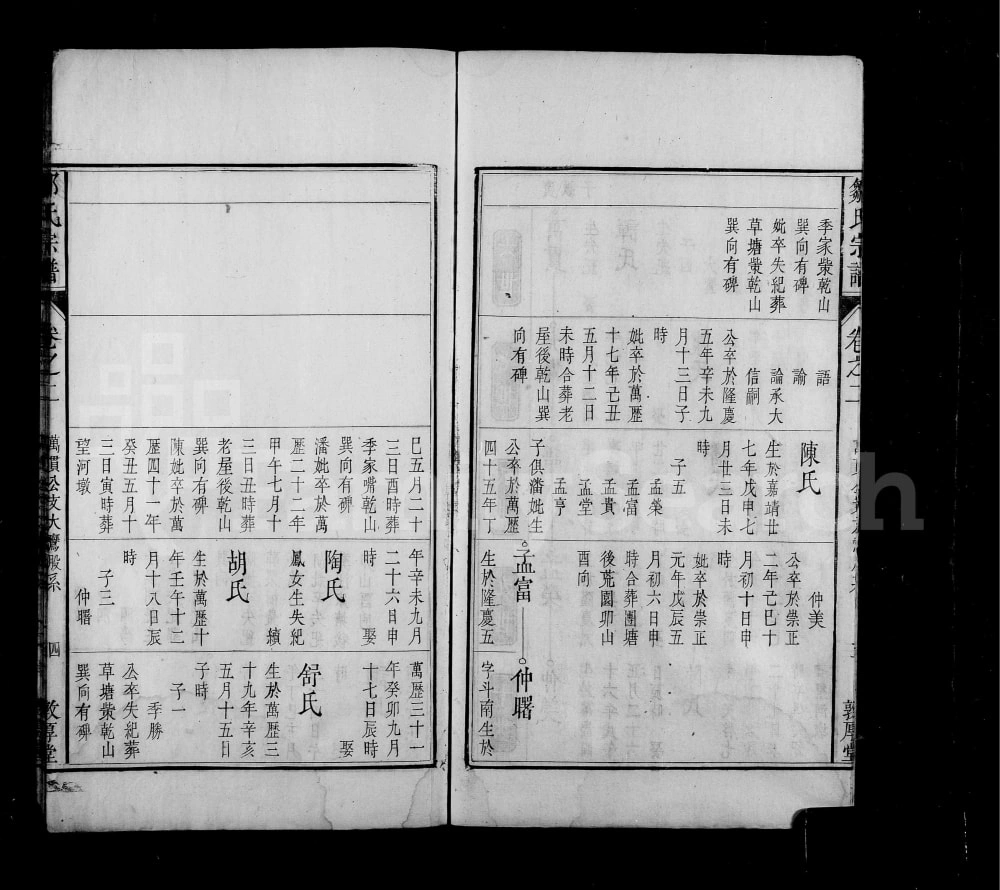 鄒氏宗譜
卷之二
敦厚堂
季家棠乾山
巽向有碑
妣卒失紀葬
草塘棠乾山
巽向有碑
語
諭
諭承大
信嗣
公卒於隆慶
五年辛未九
月十三日子
時
妣卒於萬歷
十七年己丑
五月十二日
未時合葬老
屋後乾山巽
向有碑
陳氏
生於嘉靖廿
七年戊申七
月廿三日未
時
子五
孟榮
孟富
孟貴
孟堂
孟亨
子俱潘妣生
公卒於萬歷
四十五年丁
仲美
公卒於崇正
二年己巳十
月初十日申
時
妣卒於崇正
元年戊辰五
月初六日申
時合葬團塘
後荒園卯山
酉向
孟富
生於隆慶五
仲曙
字斗南生於
巳五月二十
三日酉時葬
季家嘴乾山
巽向有碑
潘妣卒於萬
歷二十二年
甲午七月十
三日丑時葬
老屋後乾山
巽向有碑
陳妣卒於萬
歷四十一年
癸丑五月十
三日寅時葬
望河墩
年辛未九月
二十六日申
時 娶
陶氏
鳳女生失紀
繼
胡氏
生於萬歷十
年壬午十二
月十八日辰
時
子三
仲曙
萬歷三十一
年癸卯九月
十七日辰時
娶
舒氏
生於萬歷三
十九年辛亥
五月十五日
子時
子一
季勝
公卒失紀葬
草塘棠乾山
巽向有碑
氏宗譜
卷之二
四
敦厚堂